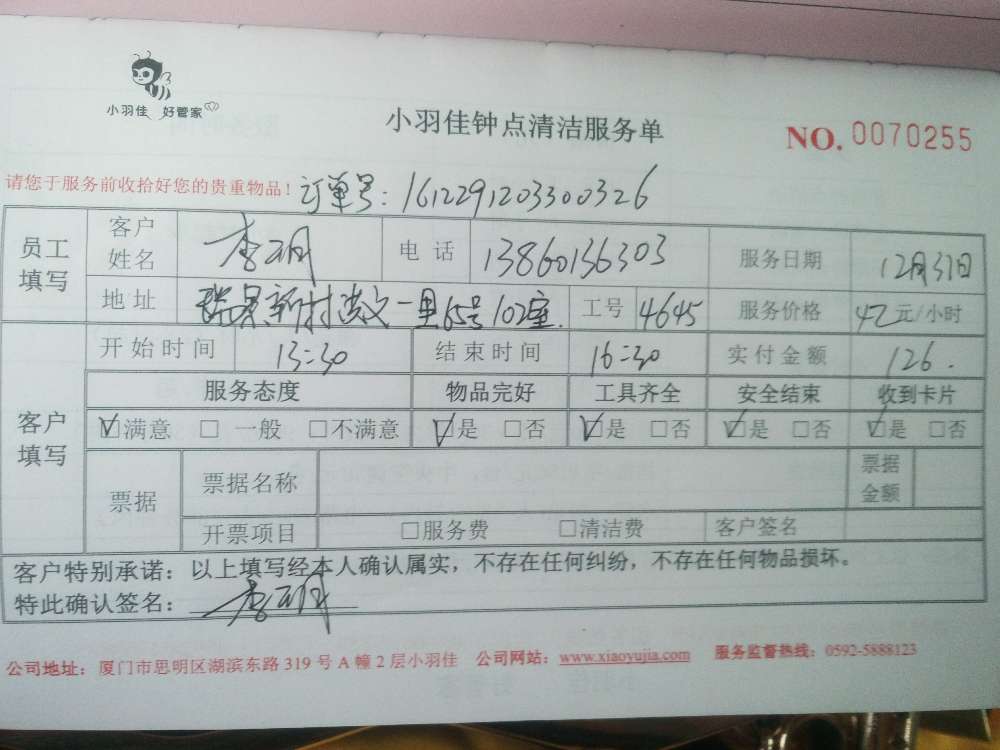 小羽佳 好管家
小羽佳钟点清洁服务单
NO. 0070255
请您于服务前收拾好您的贵重物品! 订单号:161229120330032​6
员工填写 客户姓名 李玥 电话 13860136303 服务日期 12月31日
地址 瑞景新村 一里65号102座. 工号 4645 服务价格 42元/小时
客户填写 开始时间 13:30 结束时间 16:30 实付金额 126.
服务态度 物品完好 工具齐全 安全结束 收到卡片
☑满意 □ 一般 □不满意 ☑是 □否 ☑是 □否 ☑是 □否 ☑是 □否
票据 票据名称 票据金额
开票项目 □服务费 □清洁费 客户签名
客户特别承诺:以上填写经本人确认属实,不存在任何纠纷,不存在任何物品损坏。
特此确认签名:李玥
公司地址:厦门市思明区湖滨东路 319 号 A 幢 2 层小羽佳 公司网站:www.xiaoyujia.com 服务监督热线:0592-5888123